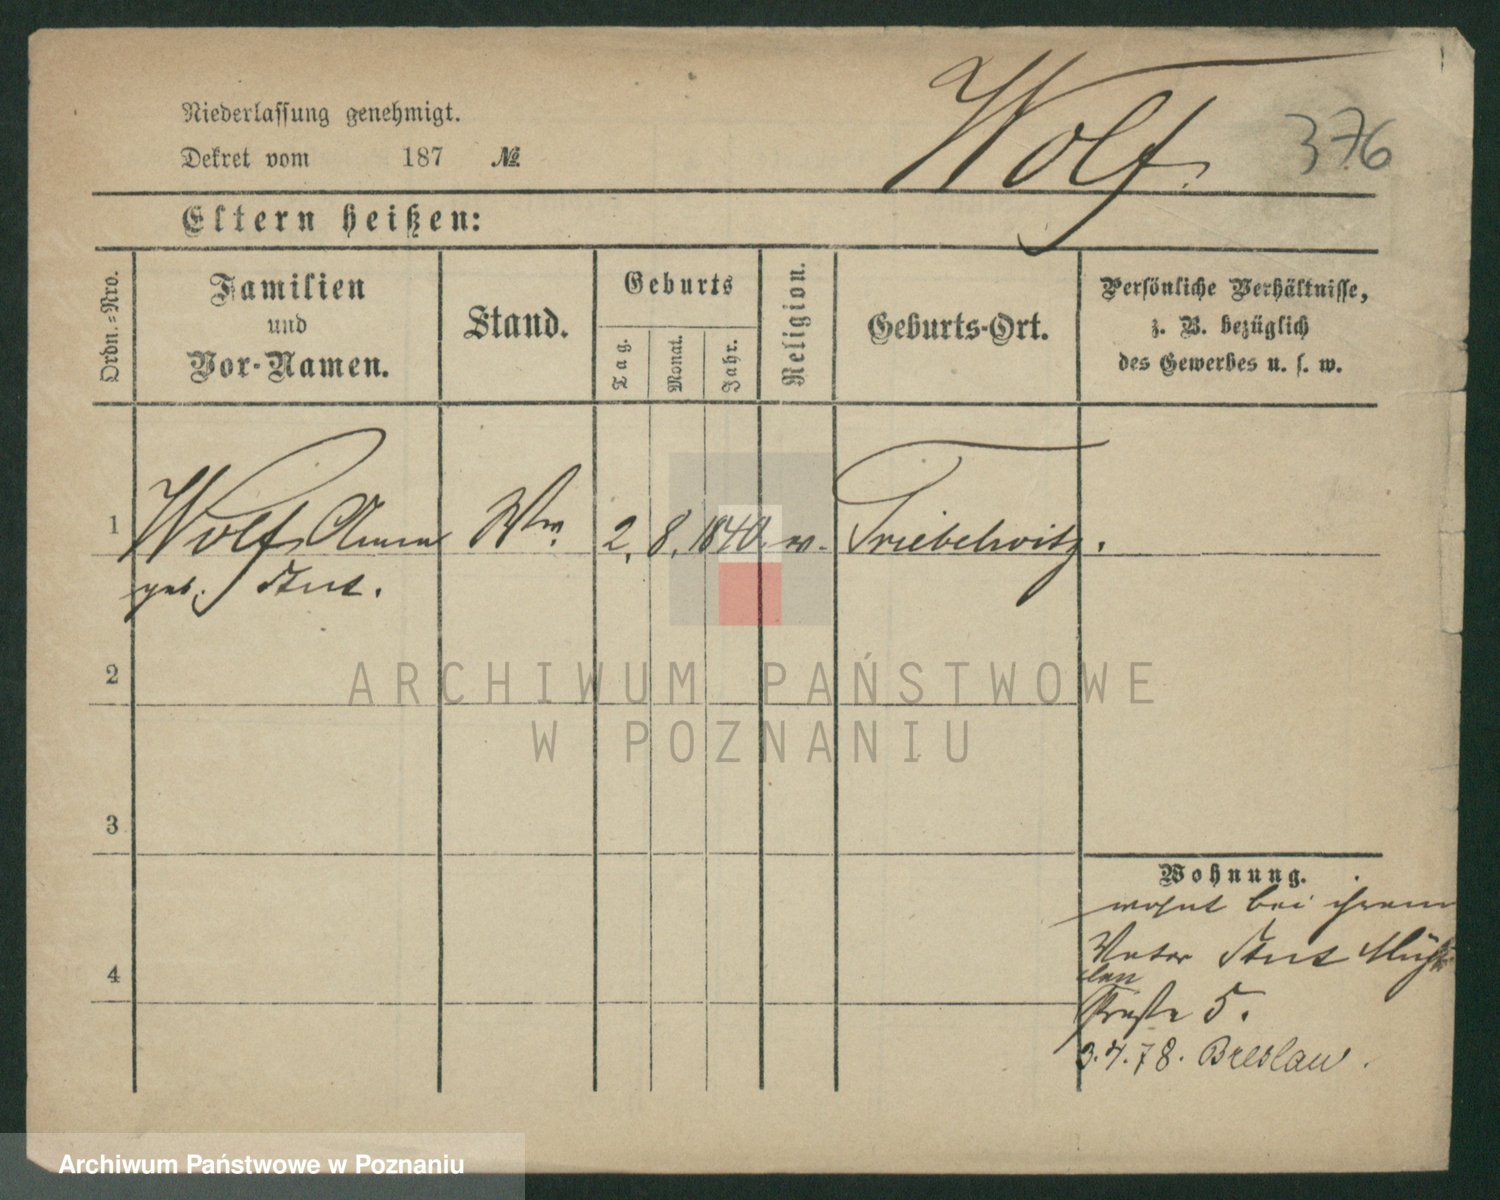 Wolf.
376
Niederlassung genehmigt.
Dekret vom 187 №
Eltern heißen:
Ordn.-Nro.
Familien
und
Vor-Namen.
Stand.
Geburts
Tag.
Monat.
Jahr.
Religion.
Geburts-Ort.
Persönliche Verhältnisse,
z. B. bezüglich
des Gewerbes u. s. w.
1 Wolf Anna Ww. 2. 8. 1840. Triebelwitz.
geb.
2
3
4
Wohnung.
wohnt bei ihrem
Vater
Straße 5.
3.4.78. Breslau.
ARCHIWUM PAŃSTWOWE
W POZNANIU
Archiwum Państwowe w Poznaniu